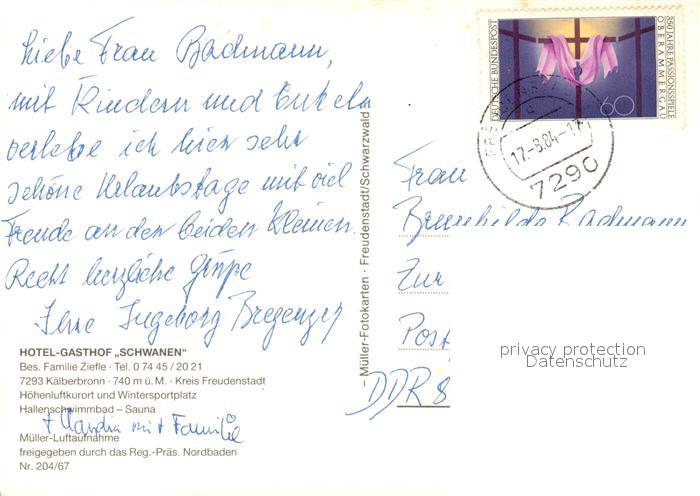 Liebe Frau Badmann,
mit Kindern und Enkeln
verlebe ich hier sehr
schöne Urlaubstage mit viel
Freude an den beiden Kleinen.
Recht herzliche Grüße
Ihre Ingeborg Bregenzer
+ Claudia mit Familie
HOTEL-GASTHOF „SCHWANEN“
Bes. Familie Ziefle · Tel. 0 74 45 / 20 21
7293 Kälberbronn · 740 m ü. M. · Kreis Freudenstadt
Höhenluftkurort und Wintersportplatz
Hallenschwimmbad – Sauna
Müller-Luftaufnahme
freigegeben durch das Reg.-Präs. Nordbaden
Nr. 204/67
– Müller-Fotokarten · Freudenstadt/Schwarzwald
DEUTSCHE BUNDESPOST
350 JAHRE PASSIONSSPIELE
OBERAMMERGAU
60
17.-8.84-17
7290
Frau
Brunhilde Badmann
Zur
Post
DDR 8
privacy protection
Datenschutz